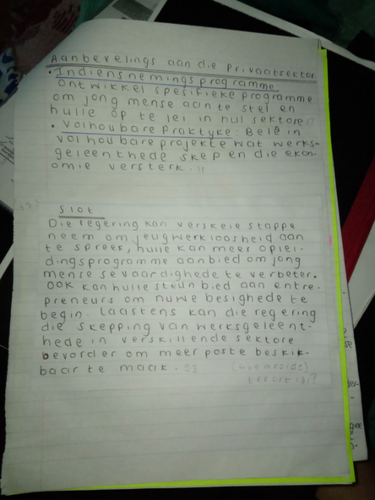 Aanbevelings aan die Privaatsektor
• Indiensnemings programme
Ontwikkel spesifieke programme
om jong mense aan te stel en
hulle op te lei in hul sektore
• Volhoubare Praktyke: Belê in
volhoubare projekte wat werks-
geleenthede skep en die ekon-
omie versterk.
Slot
Die regering kan verskeie stappe
neem om jeugwerkloosheid aan
te spreek, hulle kan meer oplei-
dingsprogramme aanbied om jong
mense se vaardighede te verbeter.
Ook kan hulle steun bied aan entre-
preneurs om nuwe besighede te
begin. Laastens kan die regering
die skepping van werksgeleent-
hede in verskillende sektore
bevorder om meer poste beskik-
baar te maak.